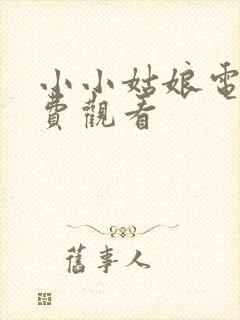 小小姑娘電
費觀看
舊事人